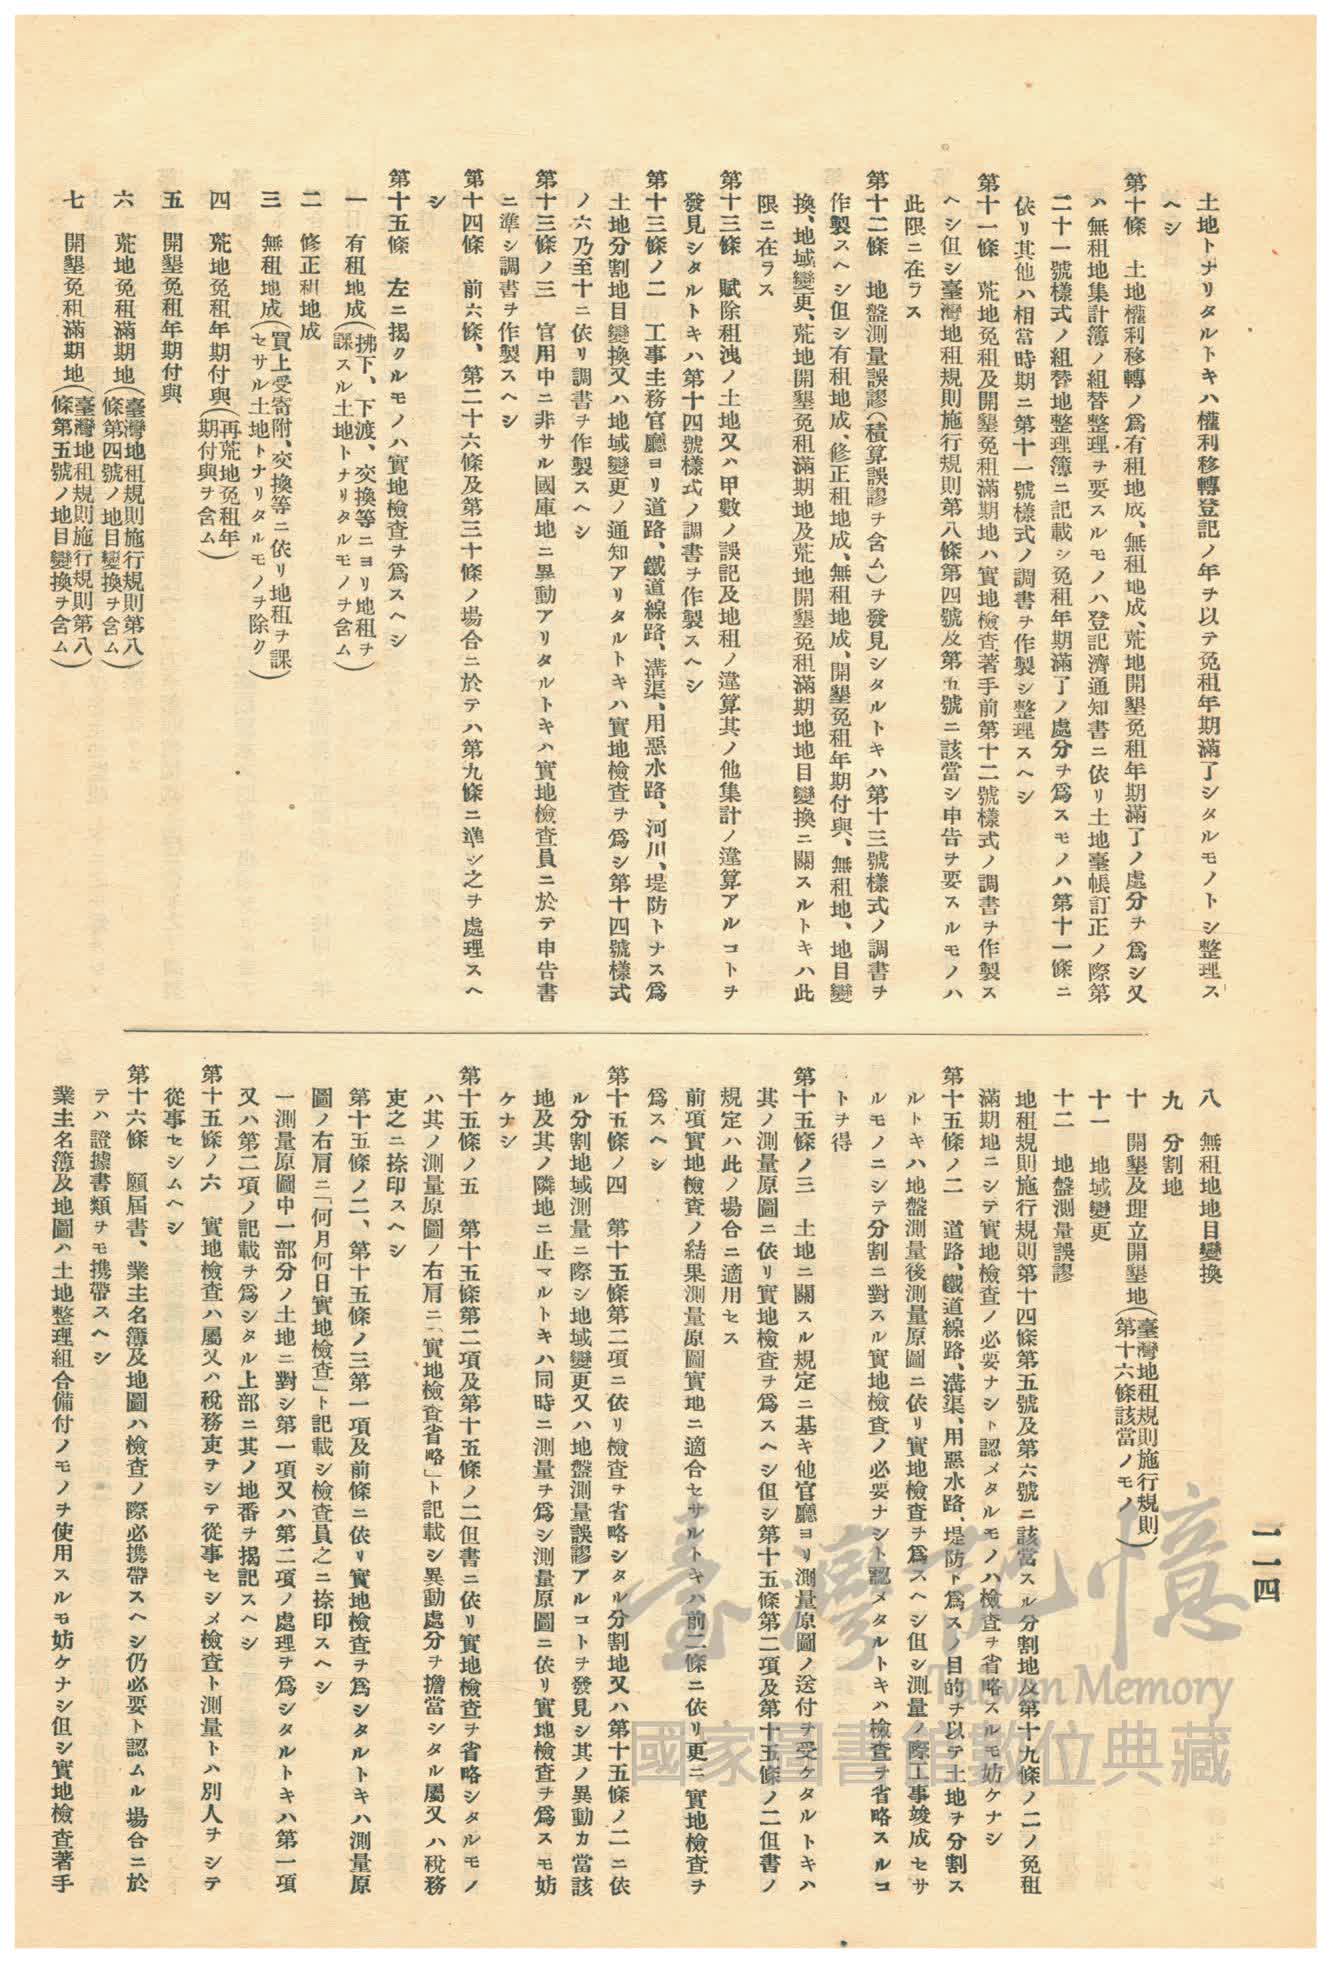 土地トナリタルトキハ權利移轉登記ノ年ヲ以テ免租年期滿了シタルモノトシ整理ス
ヘシ
第十條　土地權利移轉ノ爲有租地成、無租地成、荒地開墾免租年期滿了ノ處分ヲ爲シ又
ハ無租地集計簿ノ組替整理ヲ要スルモノハ登記濟通知書ニ依リ土地臺帳訂正ノ際第
二十一號樣式ノ組替地整理簿ニ記載シ免租年期滿了ノ處分ヲ爲スモノハ第十一條ニ
依リ其他ハ相當時期ニ第十一號樣式ノ調書ヲ作製シ整理スヘシ
第十一條　荒地免租及開墾免租滿期地ハ實地檢查著手前第十二號樣式ノ調書ヲ作製ス
ヘシ但シ臺灣地租規則施行規則第八條第四號及第五號ニ該當シ申告ヲ要スルモノハ
此限ニ在ラス
第十二條　地盤測量誤謬(積算誤謬ヲ含ム)ヲ發見シタルトキハ第十三號樣式ノ調書ヲ
作製スヘシ但シ有租地成、修正租地成、無租地成、開墾免租年期付與、無租地、地目變
換、地域變更、荒地開墾免租滿期地及荒地開墾免租滿期地地目變換ニ關スルトキハ此
限ニ在ラス
第十三條　賦除租洩ノ土地又ハ甲數ノ誤記及地租ノ違算其ノ他集計ノ違算アルコトヲ
發見シタルトキハ第十四號樣式ノ調書ヲ作製スヘシ
第十三條ノ二　工事主務官廳ヨリ道路、鐵道線路、溝渠、用惡水路、河川、堤防トナス爲
土地分割地目變換又ハ地域變更ノ通知アリタルトキハ實地檢查ヲ爲シ第十四號樣式
ノ六乃至十ニ依リ調書ヲ作製スヘシ
第十三條ノ三　官用中ニ非サル國庫地ニ異動アリタルトキハ實地檢查員ニ於テ申告書
ニ準シ調書ヲ作製スヘシ
第十四條　前六條、第二十六條及第三十條ノ場合ニ於テハ第九條ニ準シ之ヲ處理スヘ
シ
第十五條　左ニ揭クルモノハ實地檢查ヲ爲スヘシ
一　有租地成(拂下、下渡、交換等ニヨリ地租ヲ
課スル土地トナリタルモノヲ含ム)
二　修正租地成
三　無租地成(買上受寄附、交換等ニ依リ地租ヲ課
セサル土地トナリタルモノヲ除ク)
四　荒地免租年期付與(再荒地免租年
期付與ヲ含ム)
五　開墾免租年期付與
六　荒地免租滿期地(臺灣地租規則施行規則第八
條第四號ノ地目變換ヲ含ム)
七　開墾免租滿期地(臺灣地租規則施行規則第八
條第五號ノ地目變換ヲ含ム)
八　無租地地目變換
九　分割地
十　開墾及埋立開墾地(臺灣地租規則施行規則
第十六條該當ノモノ)
十一　地域變更
十二　地盤測量誤謬
地租規則施行規則第十四條第五號及第六號ニ該當スル分割地及第十九條ノ二ノ免租
滿期地ニシテ實地檢查ノ必要ナシト認メタルモノハ檢查ヲ省略スルモ妨ケナシ
第十五條ノ二　道路、鐵道線路、溝渠、用惡水路、堤防ト爲スノ目的ヲ以テ土地ヲ分割ス
ルトキハ地盤測量後測量原圖ニ依リ實地檢查ヲ爲スヘシ但シ測量ノ際工事竣成セサ
ルモノニシテ分割ニ對スル實地檢查ノ必要ナシト認メタルトキハ檢查ヲ省略スルコ
トヲ得
第十五條ノ三　土地ニ關スル規定ニ基キ他官廳ヨリ測量原圖ノ送付ヲ受ケタルトキハ
其ノ測量原圖ニ依リ實地檢查ヲ爲スヘシ但シ第十五條第二項及第十五條ノ二但書ノ
規定ハ此ノ場合ニ適用セス
前項實地檢查ノ結果測量原圖實地ニ適合セサルトキハ前二條ニ依リ更ニ實地檢查ヲ
爲スヘシ
第十五條ノ四　第十五條第二項ニ依リ檢查ヲ省略シタル分割地又ハ第十五條ノ二ニ依
ル分割地域測量ニ際シ地域變更又ハ地盤測量誤謬アルコトヲ發見シ其ノ異動カ當該
地及其ノ隣地ニ止マルトキハ同時ニ測量ヲ爲シ測量原圖ニ依リ實地檢查ヲ爲スモ妨
ケナシ
第十五條ノ五　第十五條第二項及第十五條ノ二但書ニ依リ實地檢查ヲ省略シタルモノ
ハ其ノ測量原圖ノ右肩ニ「實地檢查省略」ト記載シ異動處分ヲ擔當シタル屬又ハ稅務
吏之ニ捺印スヘシ
第十五條ノ二、第十五條ノ三第一項及前條ニ依リ實地檢查ヲ爲シタルトキハ測量原
圖ノ右肩ニ「何月何日實地檢查」ト記載シ檢查員之ニ捺印スヘシ
一測量原圖中一部分ノ土地ニ對シ第一項又ハ第二項ノ處理ヲ爲シタルトキハ第一項
又ハ第二項ノ記載ヲ爲シタル上部ニ其ノ地番ヲ揭記スヘシ
第十五條ノ六　實地檢查ハ屬又ハ稅務吏ヲシテ從事セシメ檢查ト測量トハ別人ヲシテ
從事セシムヘシ
第十六條　願屆書、業主名簿及地圖ハ檢查ノ際必携帶スヘシ仍必要ト認ムル場合ニ於
テハ證據書類ヲモ携帶スヘシ
業主名簿及地圖ハ土地整理組合備付ノモノヲ使用スルモ妨ケナシ但シ實地檢查著手
一一四
臺灣記憶
Taiwan Memory
國家圖書館數位典藏